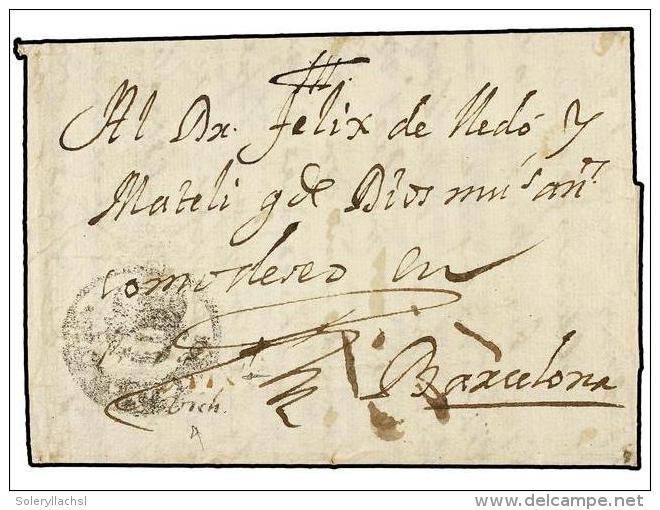 Al Dr. Felix de Nedó y
Mateli g.de Dios mu.s an.s
como deseo en
Barcelona
Soleryllachsl
delcampe.net